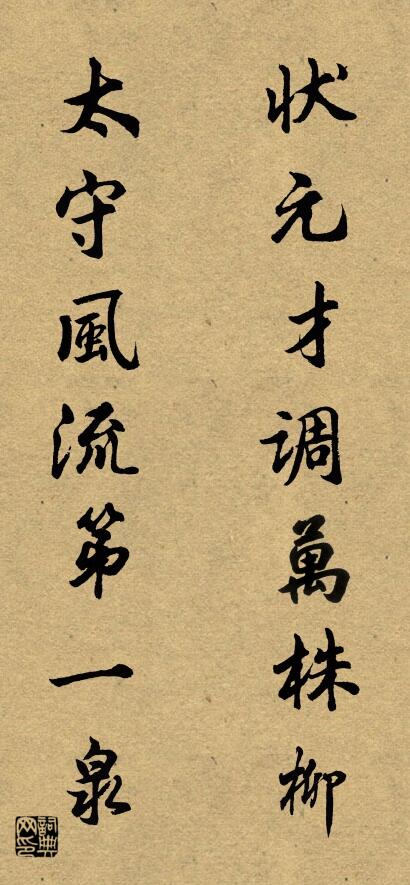 状元才调萬株柳
太守風流第一泉
詞典网印